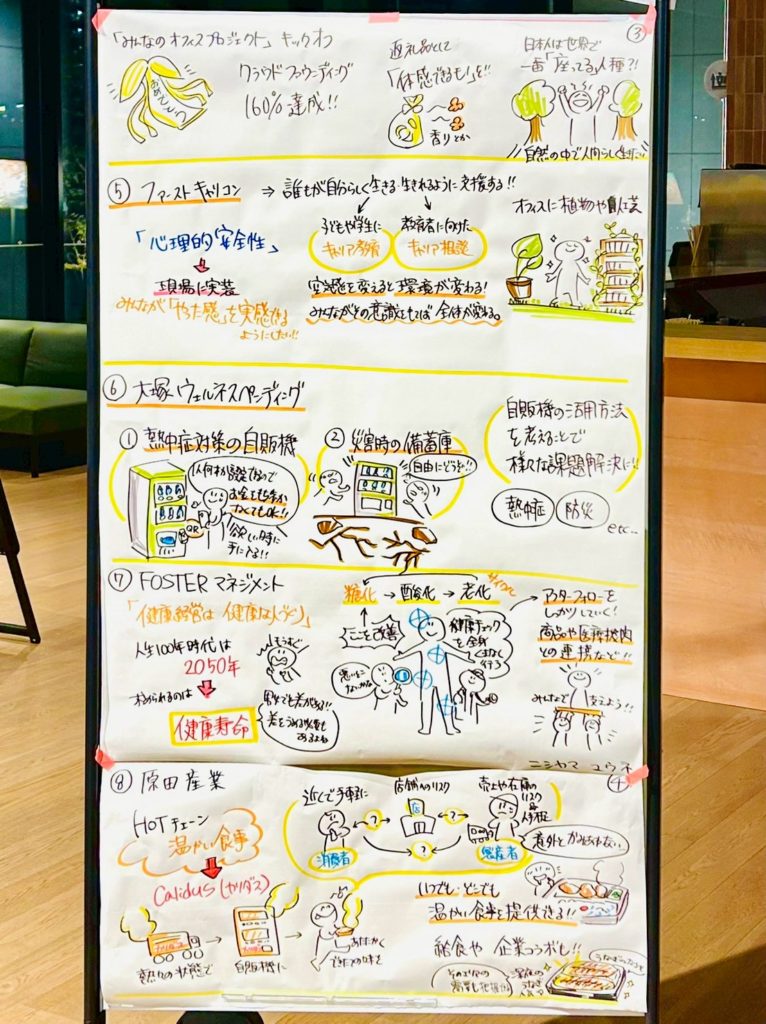 ③
「みんなのオフィスプロジェクト」キックオフ
おめでとう
クラウドファウンディング
160%達成!!
返礼品として
「体感できるもの」を!!
香りとか
日本人は世界で
一番「座ってる」人種?!
自然の中で人間らしく生きたい
⑤ ファーストキャリコン → 誰もが自分らしく生きる・生きれるように支援する!!
「心理的安全性」
現場に実装
みんなが「やった感」を実感できる
ようにしたい!!
子どもや学生に
キャリア教育
教育者に向けた
キャリア相談
空感を変えると環境が変わる!
みんながその意識をもてば全体が変わる。
オフィスに植物や
⑥ 大塚ウェルネスベンディング
① 熱中症対策の自販機
お金を持ってなくてもOK!!
QR
欲しい時に
手に入る!!
② 災害時の備蓄庫
自由にどうぞ!!
自販機の活用方法
を考えることで
様々な課題解決に!!
熱中症
防災
etc...
⑦ FOSTERマネジメント
「健康経営は健康な人づくり」
人生100年時代は
2050年
求められるのは
健康寿命
男女でも差がある!!
糖化→酸化→老化
サイクル
ここを改善
健康チェックを全身
くまなく
行う
アフターフォローを
しっかりしていく!
商品や医療機関
との連携など!!
みんなで支えよう!!
ニシヤマ ユウキ
④
⑧ 原田産業
HOTチェーン
温かい食事
Calidus(カリダス)
熱々の状態で
自販機に
あたたかく
できたての味を
近くで手軽に
消費者
店舗のリスク
店
売上や在庫の
リスク
&
人手不足
生産者
意外とかなわない
いつでも・どこでも
温かい食事を提供できる!!
給食や企業コラボも!!